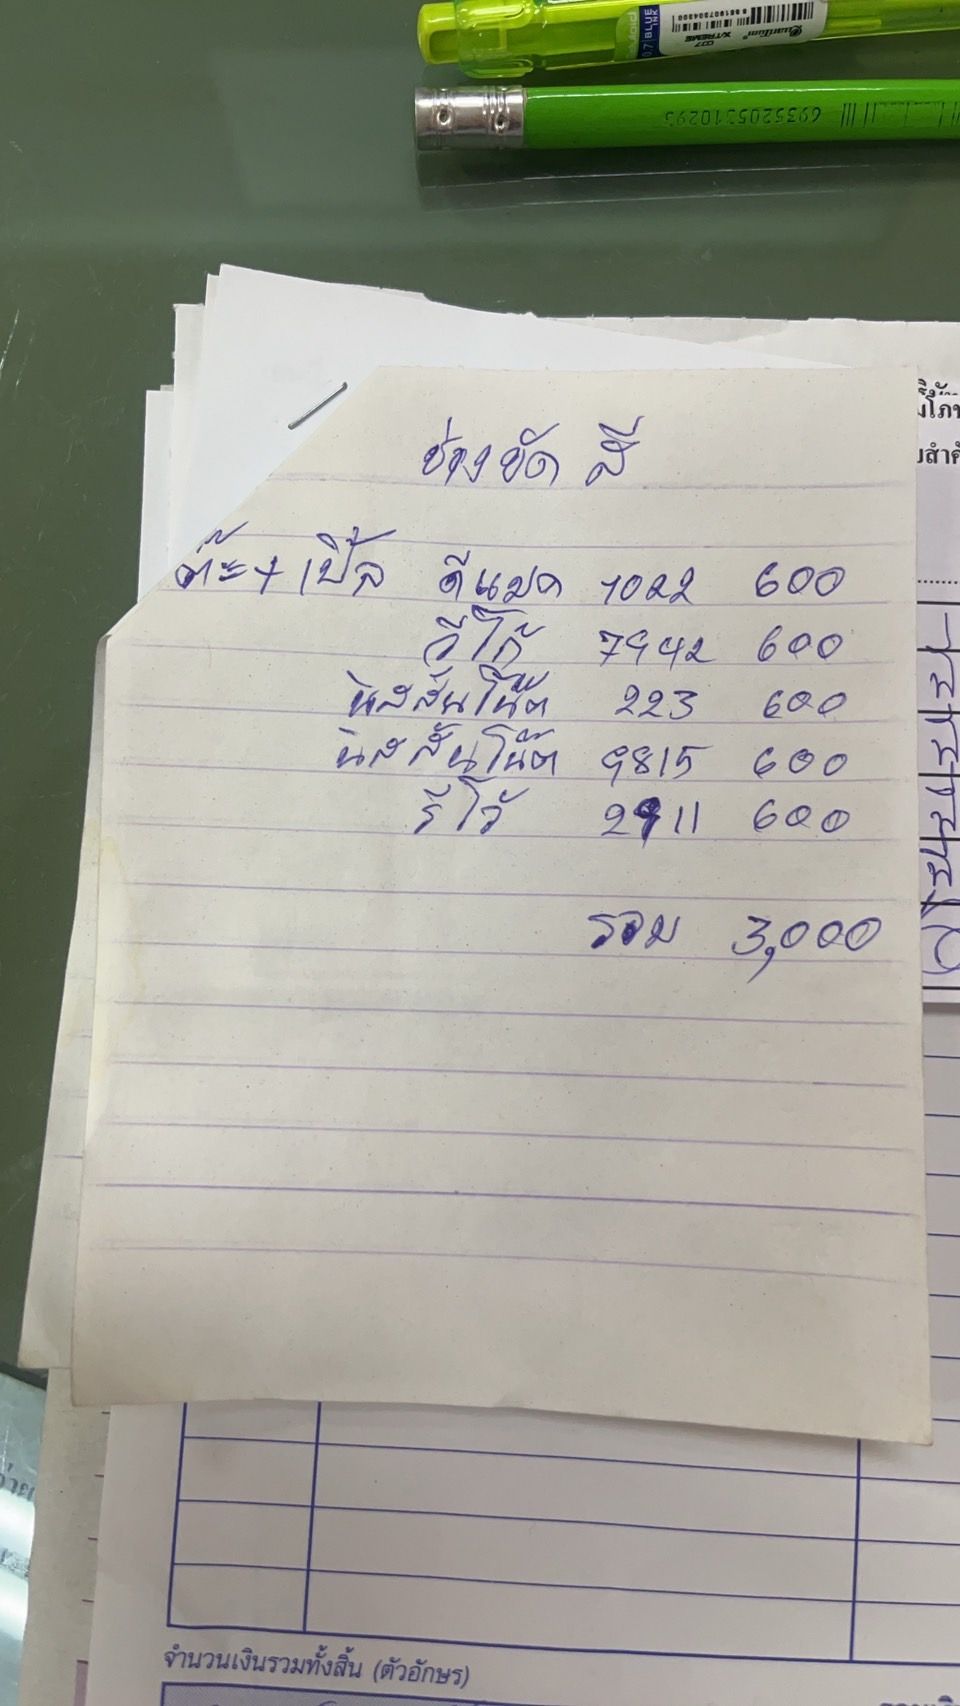 Quantum
007
X-TREME
0.7 BLUE INK
6935205310293
ช่างขัด สี
ต๊ะ + เปิ้ล ดีแมค 1022 600
วีโก้ 7942 600
นิสสันโน๊ต 223 600
นิสสันโน๊ต 9815 600
รีโว้ 2911 600
รวม 3,000
จำนวนเงินรวมทั้งสิ้น (ตัวอักษร)